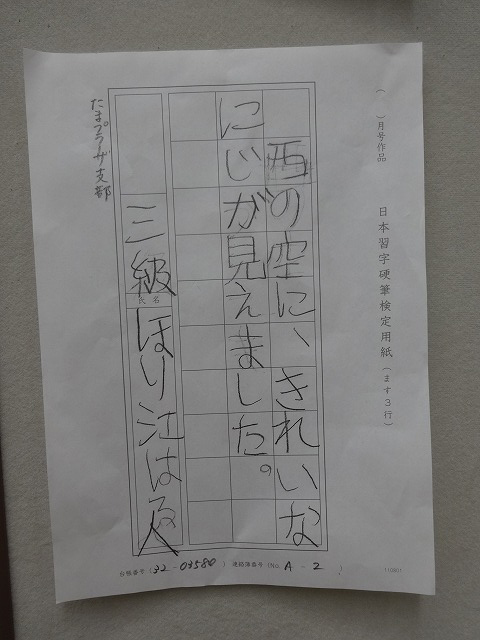 ( )月号作品
日本習字硬筆検定用紙(ます3行)
西の空に、きれいな
にじが見えました。
三級
氏名
ほり江はる人
たまプラーザ支部
台帳番号(32-03580) 連絡簿番号(No. A-2)